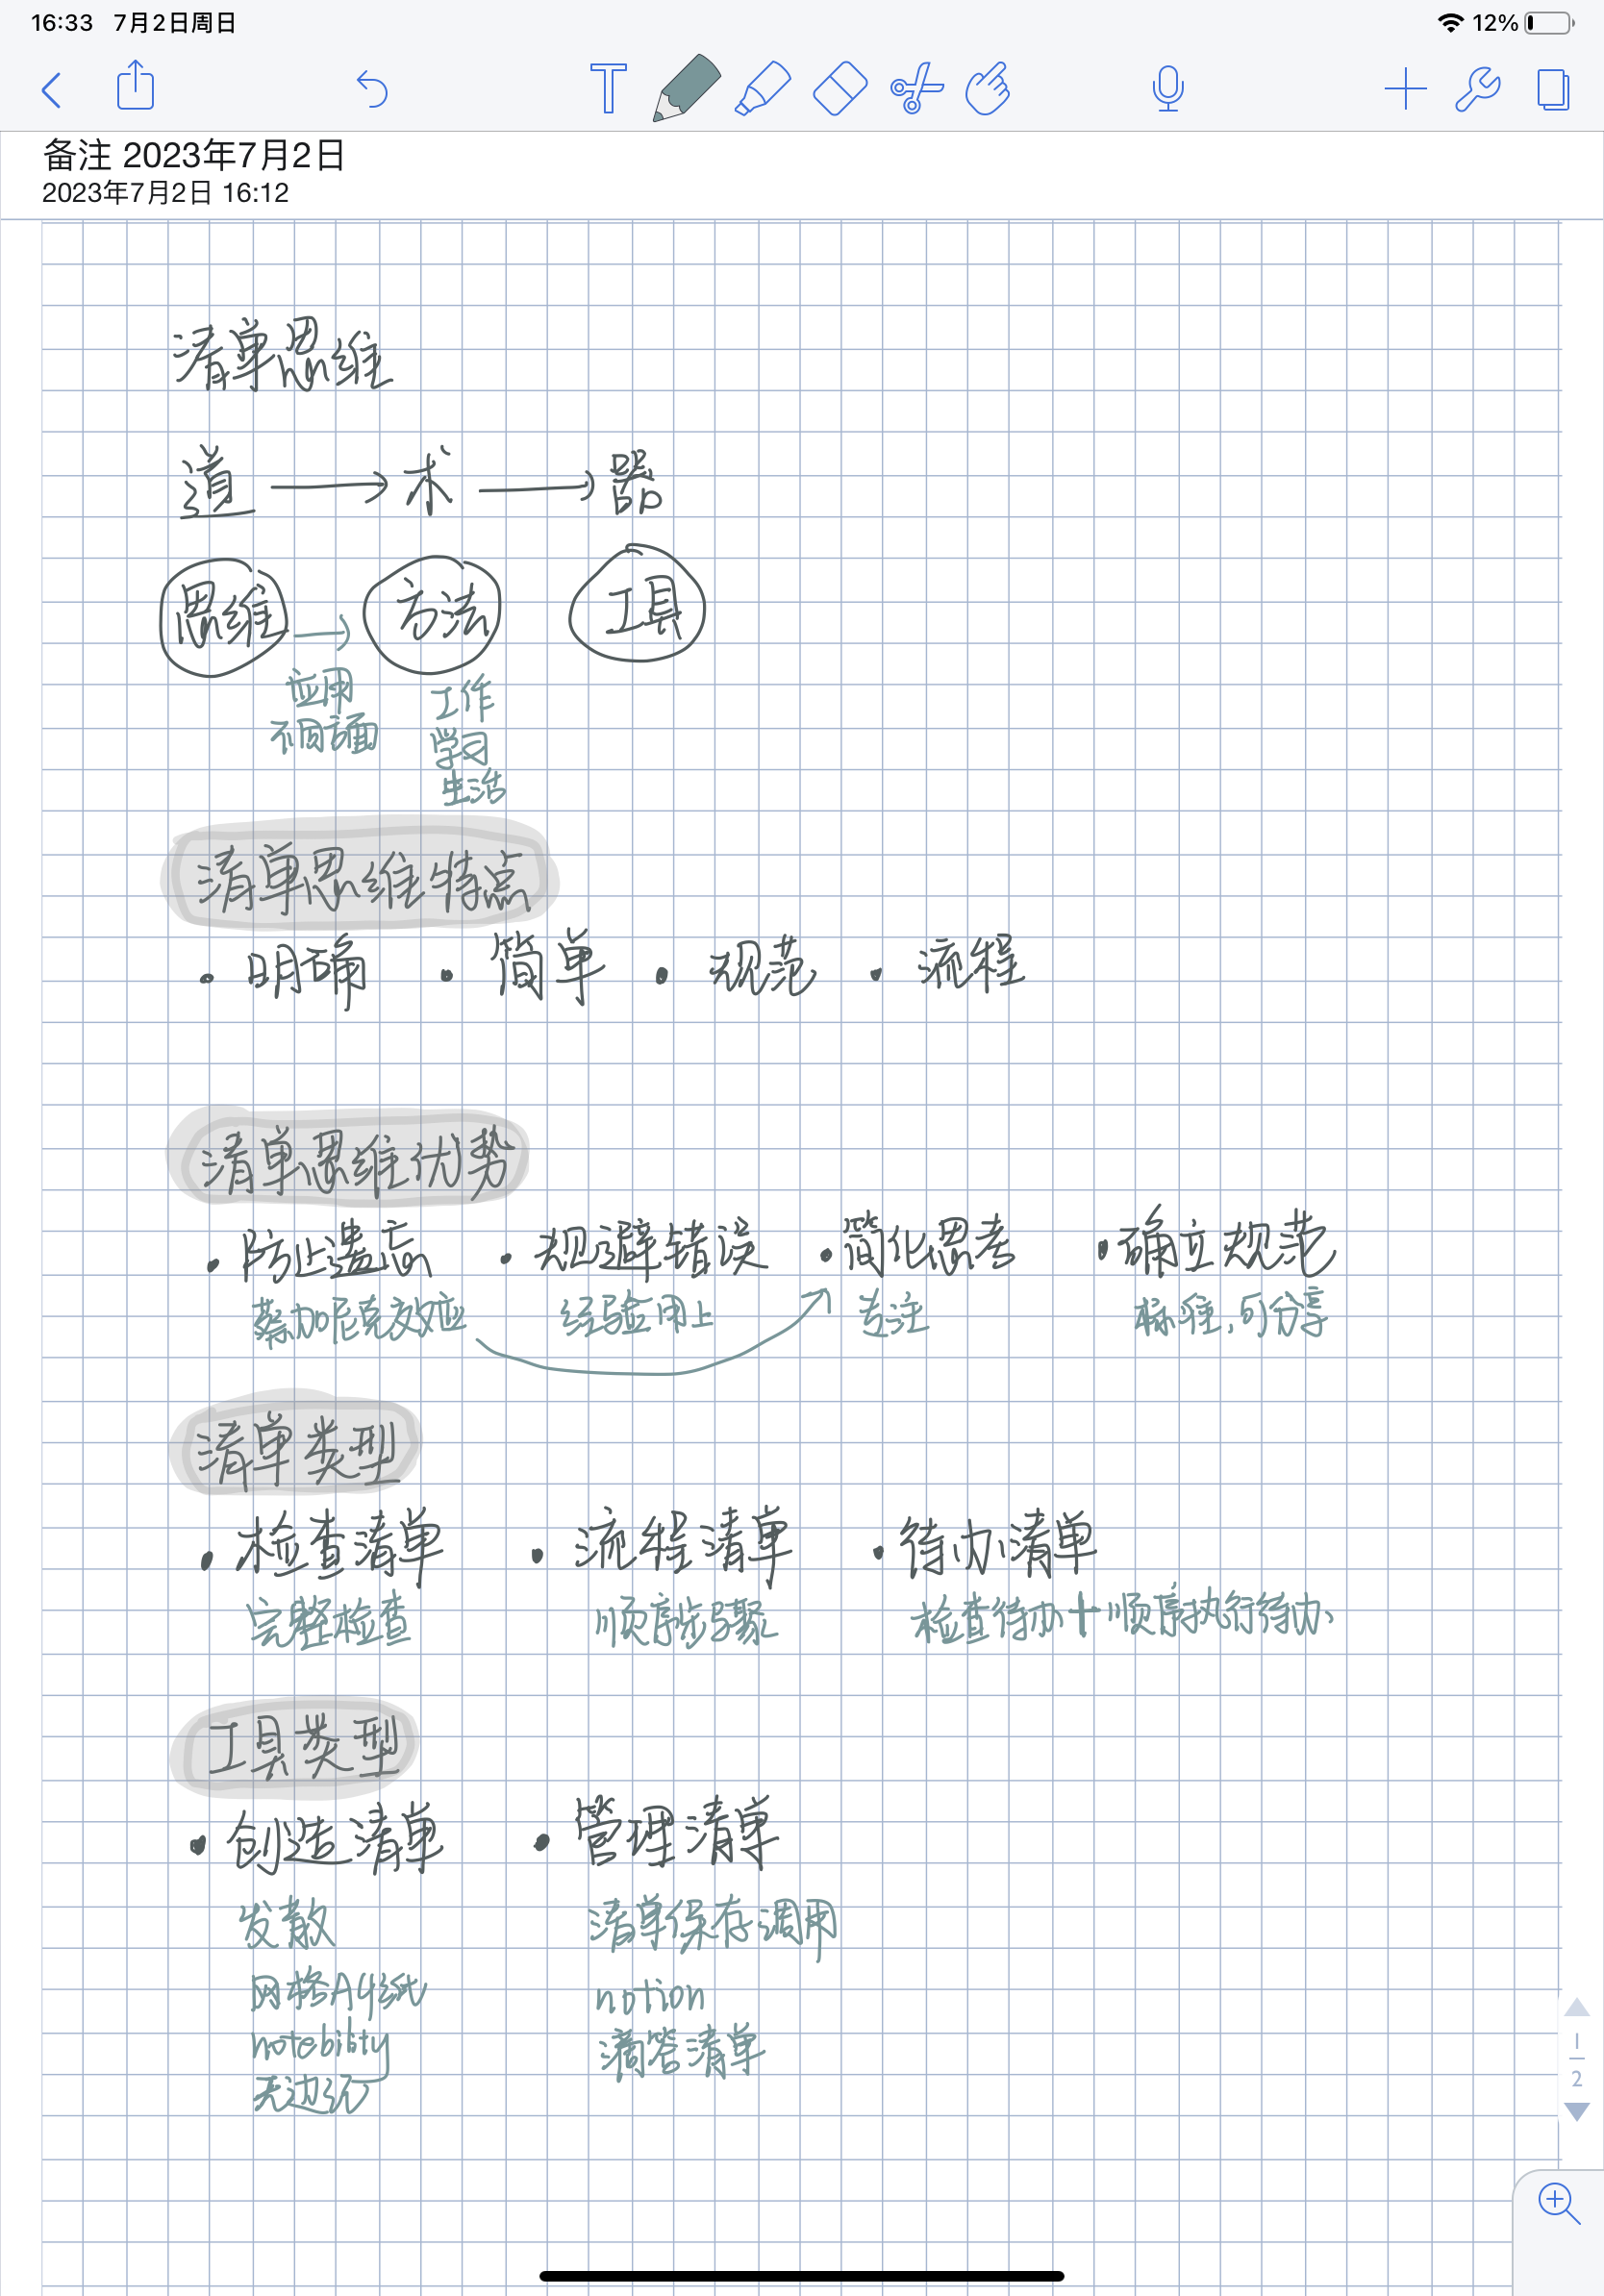 16:33 7月2日周日 12%
备注 2023年7月2日
2023年7月2日 16:12
清单思维
道 → 术 → 器
思维 → 方法 工具
应用 工作
不同方面 学习
生活
清单思维特点
· 明确 · 简单 · 规范 · 流程
清单思维优势
· 防止遗忘 · 规避错误 · 简化思考 · 确立规范
蔡加尼克效应 经验用上 专注 标准,可分享
清单类型
· 检查清单 · 流程清单 · 待办清单
完整检查 顺序步骤 检查待办+顺序执行待办
工具类型
· 创造清单 · 管理清单
发散 清单保存调用
网格A4纸 notion
notebility 滴答清单
无边记
1
2